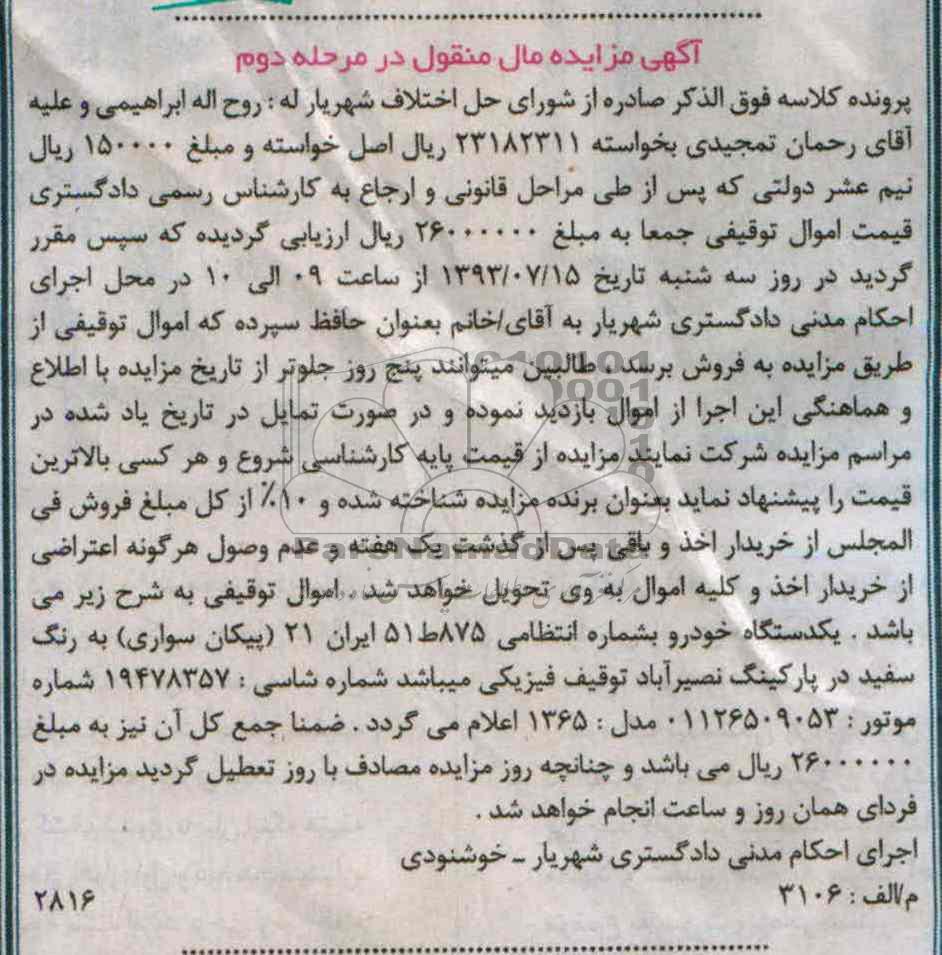 آگهی مزایده مال منقول در مرحله دوم
پرونده کلاسه فوق الذکر صادره از شورای حل اختلاف شهریار له : روح اله ابراهیمی و علیه
آقای رحمان تمجیدی بخواسته ۲۳۱۸۲۳۱۱ ریال اصل خواسته و مبلغ ۱۵۰۰۰۰ ریال
نیم عشر دولتی که پس از طی مراحل قانونی و ارجاع به کارشناس رسمی دادگستری
قیمت اموال توقیفی جمعا به مبلغ ۲۶۰۰۰۰۰۰ ریال ارزیابی گردیده که سپس مقرر
گردید در روز سه شنبه تاریخ ۱۳۹۳/۰۷/۱۵ از ساعت ۰۹ الی ۱۰ در محل اجرای
احکام مدنی دادگستری شهریار به آقای/خانم بعنوان حافظ سپرده که اموال توقیفی از
طریق مزایده به فروش برسد ، طالبین میتوانند پنج روز جلوتر از تاریخ مزایده با اطلاع
و هماهنگی این اجرا از اموال بازدید نموده و در صورت تمایل در تاریخ یاد شده در
مراسم مزایده شرکت نمایند مزایده از قیمت پایه کارشناسی شروع و هر کسی بالاترین
قیمت را پیشنهاد نماید بعنوان برنده مزایده شناخته شده و ۱۰٪ از کل مبلغ فروش فی
المجلس از خریدار اخذ و باقی پس از گذشت یک هفته و عدم وصول هرگونه اعتراضی
از خریدار اخذ و کلیه اموال به وی تحویل خواهد شد . اموال توقیفی به شرح زیر می
باشد . یکدستگاه خودرو بشماره انتظامی ۸۷۵ط۵۱ ایران ۲۱ (پیکان سواری) به رنگ
سفید در پارکینگ نصیرآباد توقیف فیزیکی میباشد شماره شاسی : ۱۹۴۷۸۳۵۷ شماره
موتور : ۰۱۱۲۶۵۰۹۰۵۳ مدل : ۱۳۶۵ اعلام می گردد . ضمنا جمع کل آن نیز به مبلغ
۲۶۰۰۰۰۰۰ ریال می باشد و چنانچه روز مزایده مصادف با روز تعطیل گردید مزایده در
فردای همان روز و ساعت انجام خواهد شد .
اجرای احکام مدنی دادگستری شهریار ـ خوشنودی
م/الف : ۳۱۰۶ ۲۸۱۶